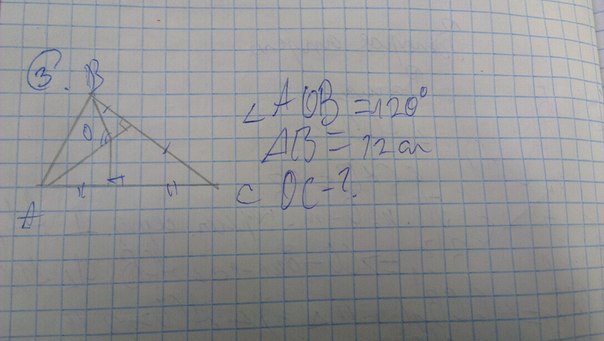 3. B
∠AOB = 120°
O
AB = 12 см
A
C OC - ?